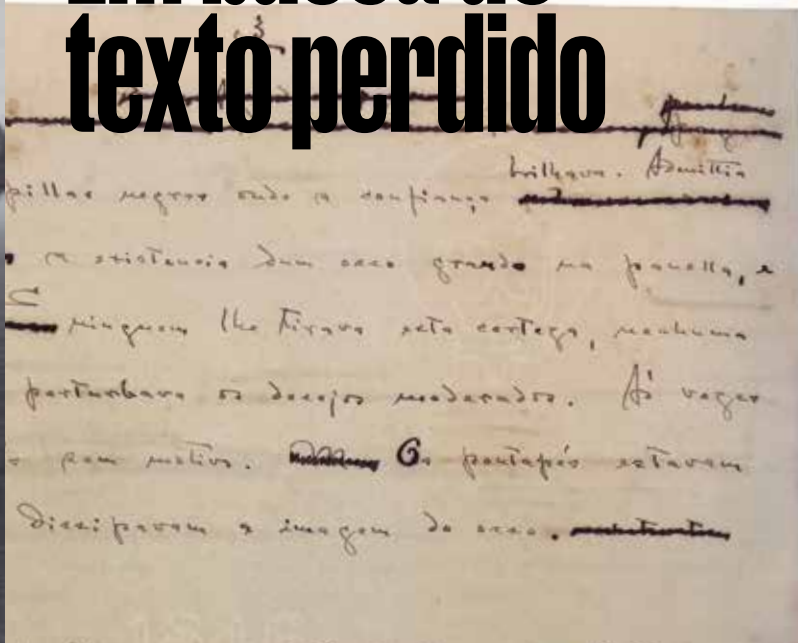 Em busca do
texto perdido
3
brilhava. Admittia
pillas negras onde a confiança
a existencia dum osso grande na panella, e
ninguem lhe tirava esta certeza, nenhuma
perturbava os desejos moderados. Ás vezes
sem motivo. Os pontapés estavam
dissipavam a imagem do osso.